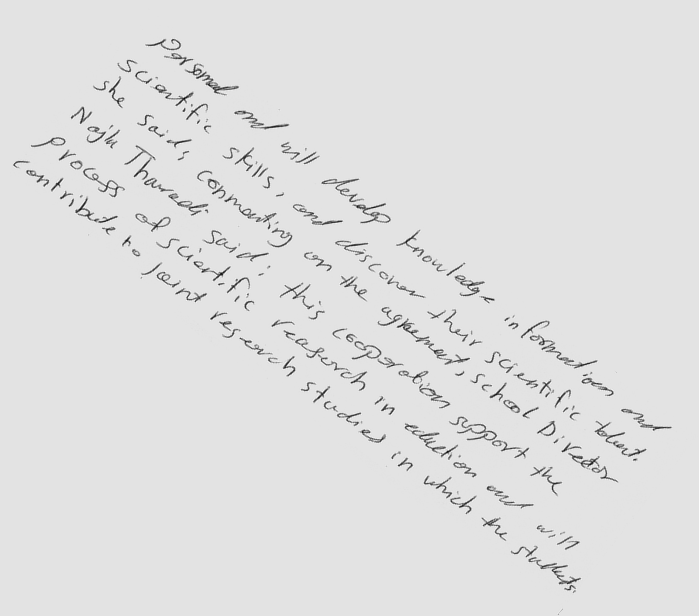 Personal and will develop knowledge information and
scientific skills, and discover their scientific talent.
she said, commenting on the agreement, school Director
Najla said: this cooperation support the
process of scientific reaserch in eduction and will
contribute to joint reserch studies in which the students.